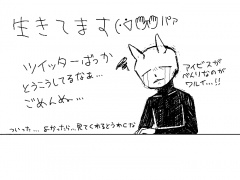 生きてます(･ワ･)パァ
ツイッターばっか
とうこうしてるなぁ…
ごめんぬ〜…
アイビスが
べんりなのが
ワルイ…!!
ついった… よかったら…見てくれるとうれしな